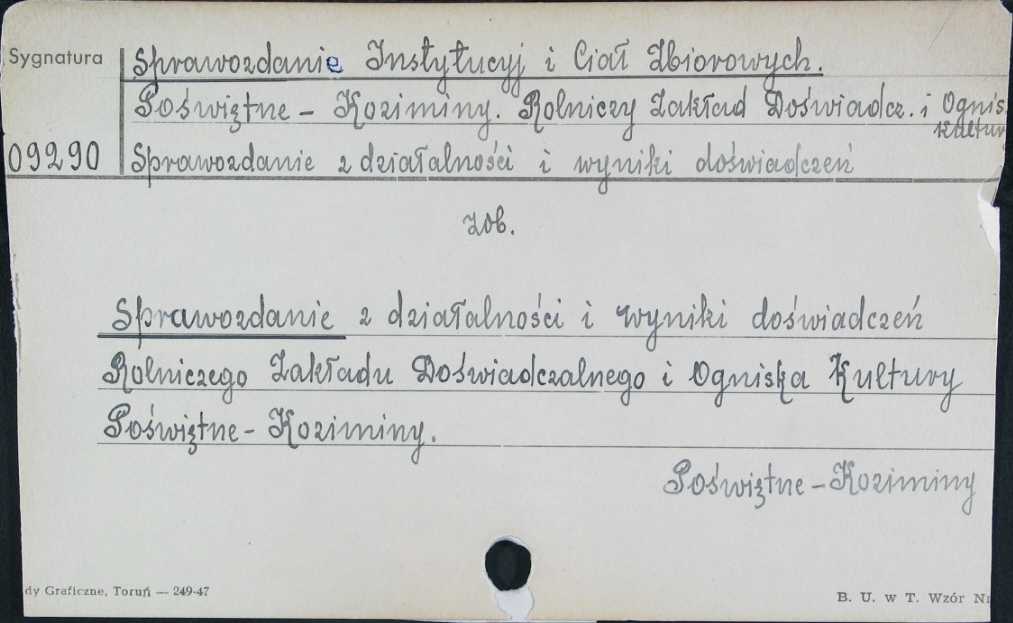 Sygnatura
Sprawozdanie Instytucyj i Ciał Zbiorowych.
Poświętne - Koziminy. Rolniczy Zakład Doświadcz. i Ognis.
Kultur
09290
Sprawozdanie z działalności i wyniki doświadczeń
zob.
Sprawozdanie z działalności i wyniki doświadczeń
Rolniczego Zakładu Doświadczalnego i Ogniska Kultury
Poświętne - Koziminy.
Poświętne - Koziminy
dy Graficzne, Toruń — 249-47
B. U. w T. Wzór Nr